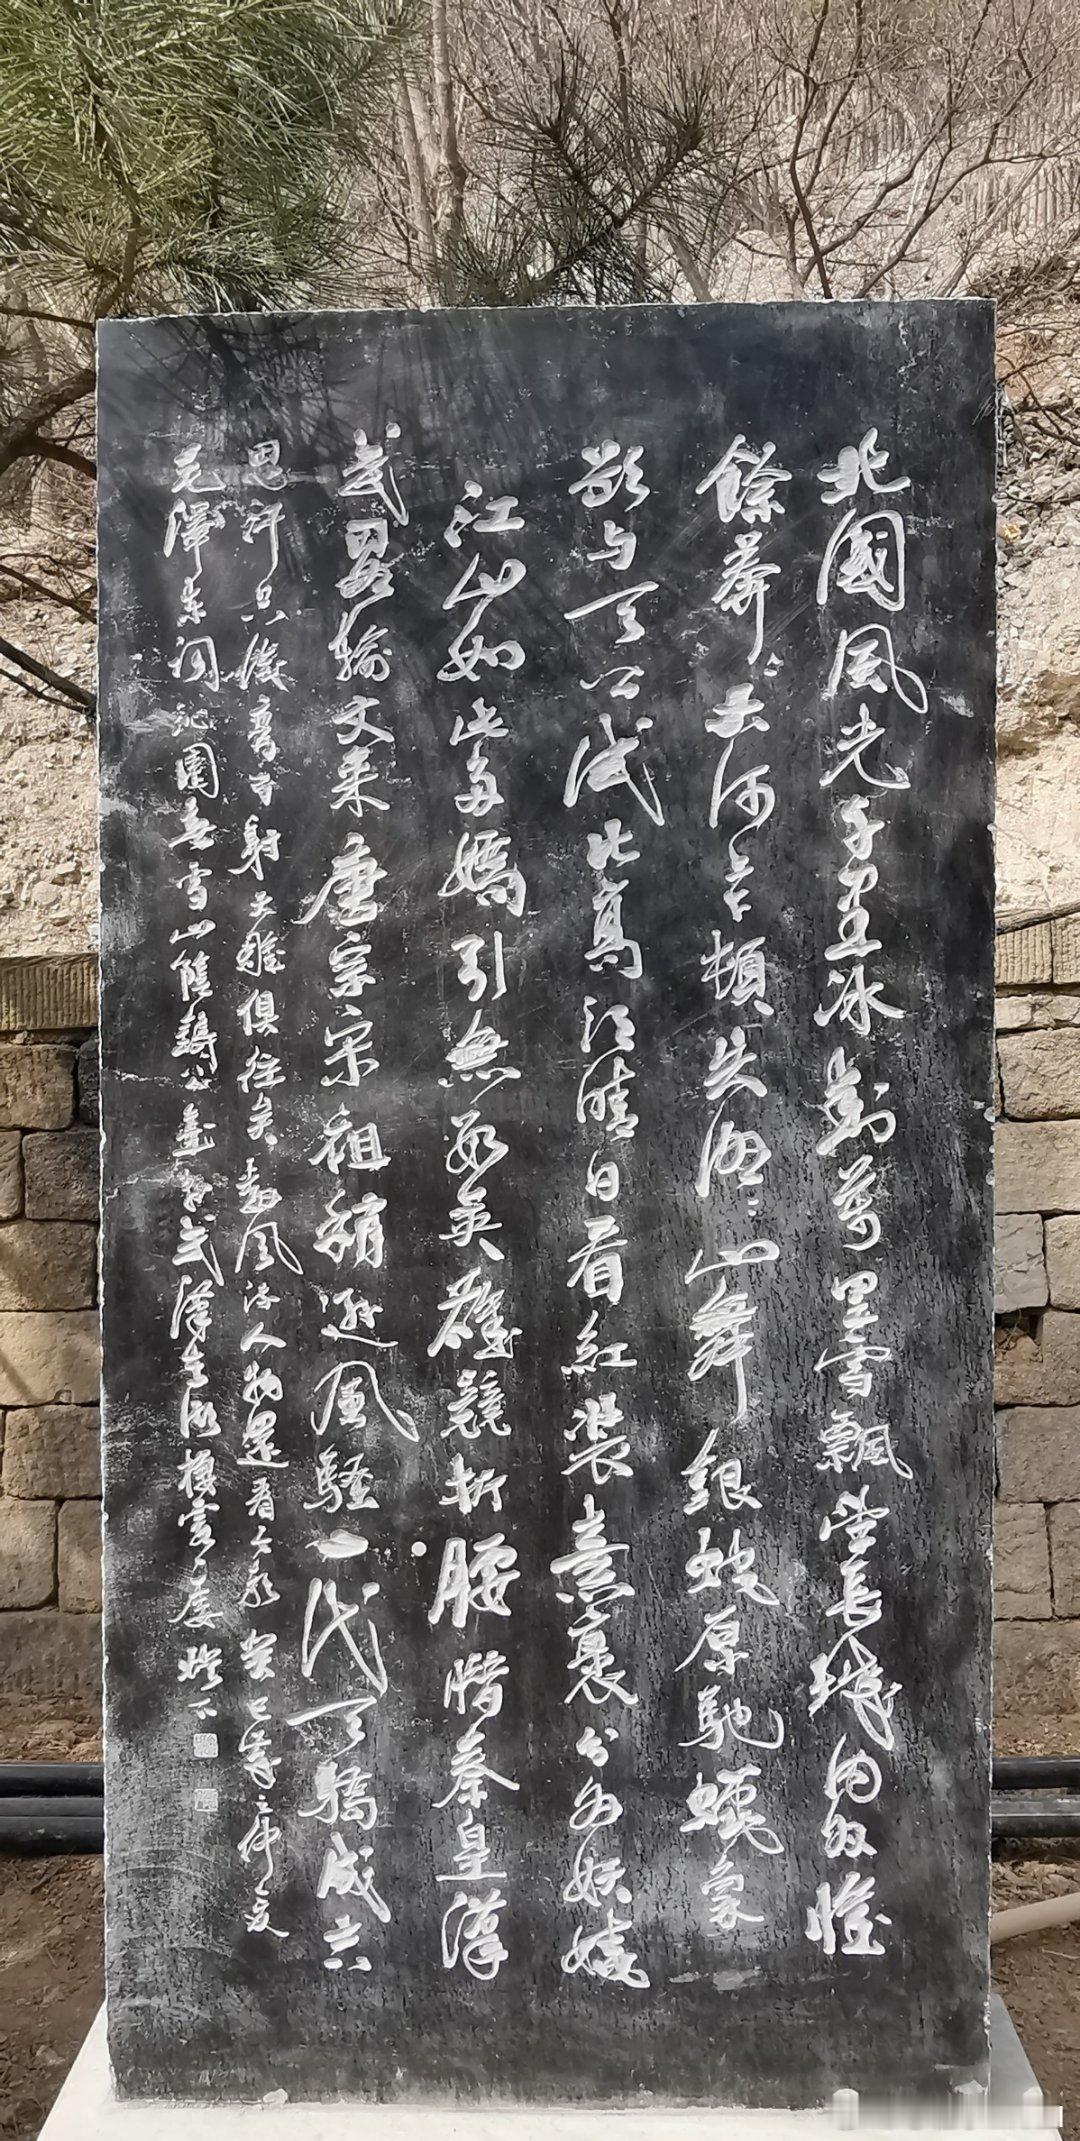 北國風光千里冰封萬里雪飄望長城内外惟
餘莽〻大河上下頓失滔〻山舞銀蛇原馳蠟象
欲与天公試比高須晴日看紅裝素裹分外妖嬈
江山如此多嬌引無數英雄競折腰惜秦皇漢
武略輸文采唐宗宋祖稍遜風騷一代天驕成吉
思汗只識彎弓射大雕俱往矣數風流人物還看今朝癸巳年之仲夏
毛澤東詞沁園春雪